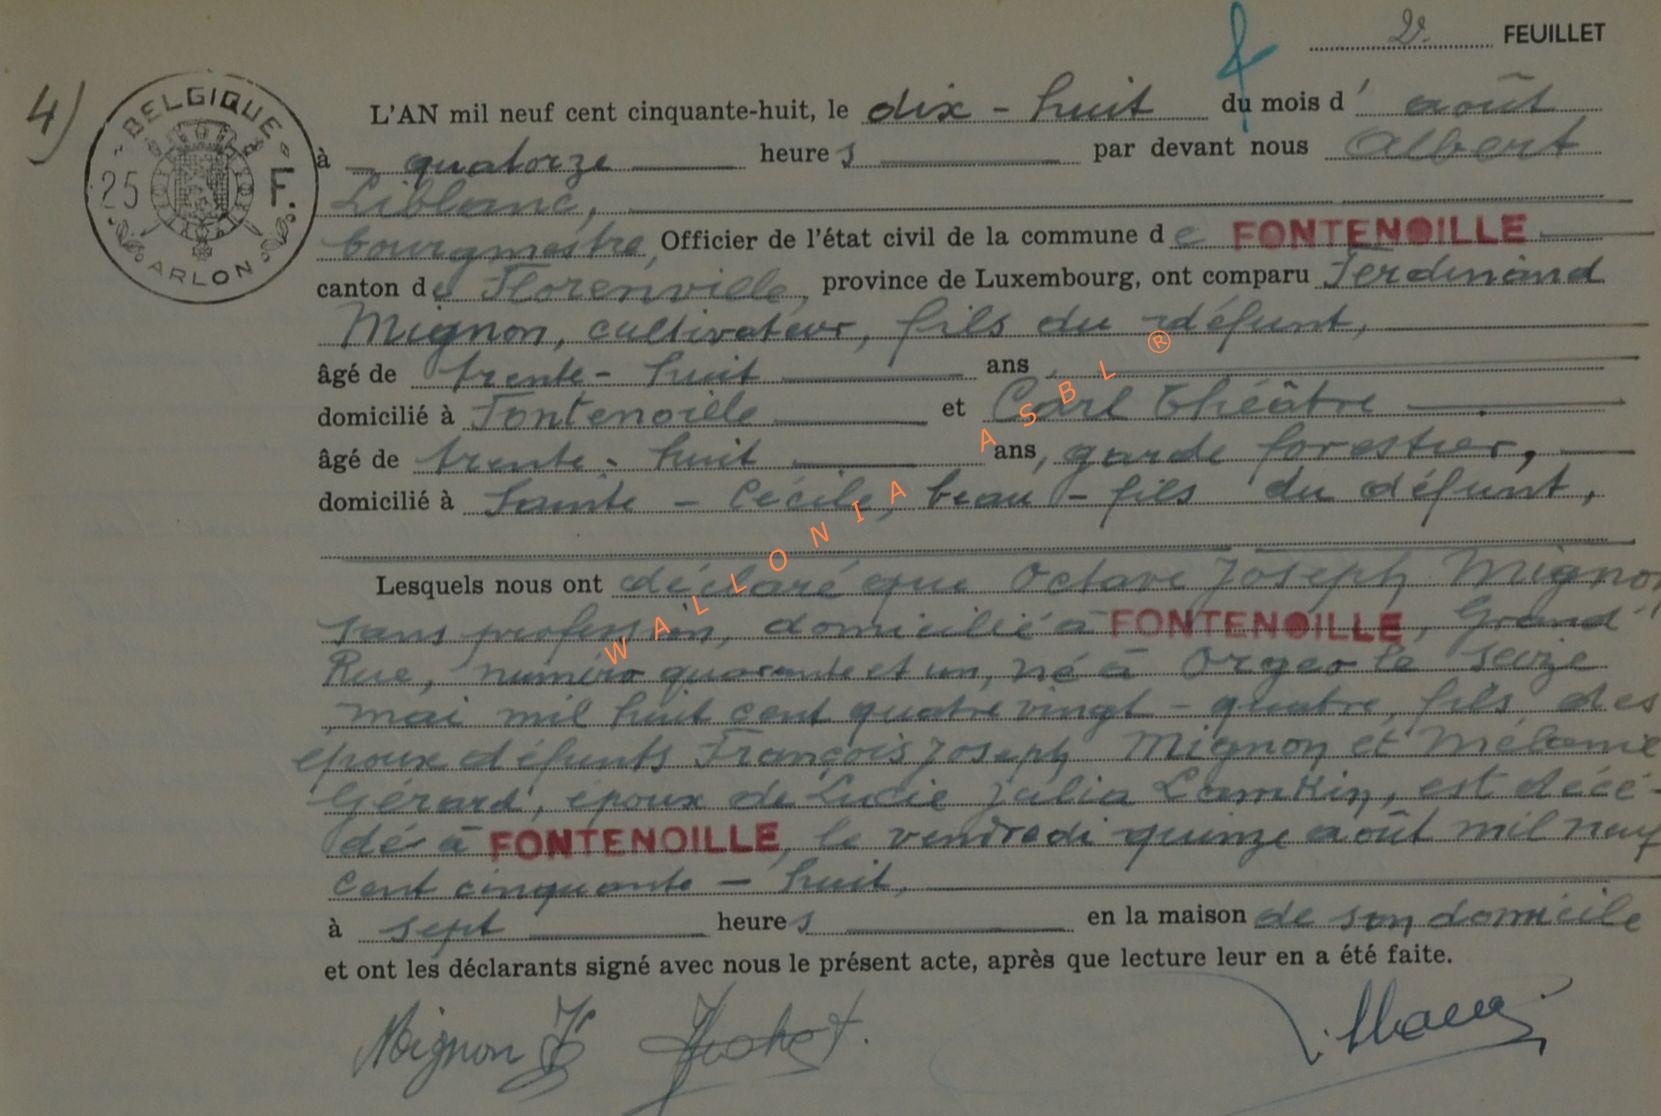 2e. FEUILLET
4)
BELGIQUE
25 F.
ARLON
L'AN mil neuf cent cinquante-huit, le dix - huit du mois d' août
à quatorze heures par devant nous Albert
Liblanc,
bourgmestre, Officier de l'état civil de la commune de FONTENOILLE
canton de Florenville, province de Luxembourg, ont comparu Ferdinand
Mignon, cultivateur, fils du défunt,
âgé de trente - huit ans
domicilié à Fontenoille et Carl Théâtre
âgé de trente - huit ans, garde forestier,
domicilié à Sainte - Cécile, beau - fils du défunt,
Lesquels nous ont déclaré que Octave Joseph Mignon
sans profession, domicilié à FONTENOILLE, Grand'
Rue, numéro quarante et un, né à Orgeo le seize
mai mil huit cent quatre vingt - quatre, fils des
époux défunts François Joseph Mignon et Mélanie
Gérard, époux de Lucie Julia Lamkin, est décé-
dé à FONTENOILLE, le vendredi quinze août mil neuf
cent cinquante - huit,
à sept heures en la maison de son domicile
et ont les déclarants signé avec nous le présent acte, après que lecture leur en a été faite.
Mignon F
WALLONIA ASBL ®